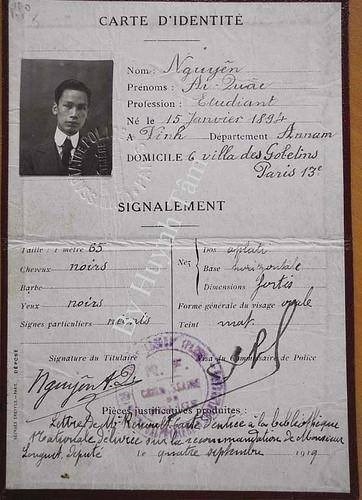 CARTE D'IDENTITÉ
Nom : Nguyễn
Prénoms : Ái-Quấc
Profession : Etudiant
Né le 15 Janvier 1894
A Vinh Département Annam
DOMICILE 6 villa des Gobelins
Paris 13e
SIGNALEMENT
Taille : 1 mètre 65
Cheveux noirs
Barbe
Yeux noirs
Signes particuliers
Nez
Dos aplati
Base horizontale
Dimensions fortes
Forme générale du visage ovale
Teint mat
Signature du Titulaire
Visa du Commissaire de Police
Nguyễn A. Q.
Pièces justificatives produites :
Lettre de Mr carte d'entrée à la bibliothèque
Nationale délivrée sur la recommandation de Monsieur
Longuet, député le quatre septembre 1919
By Huynh Tâm